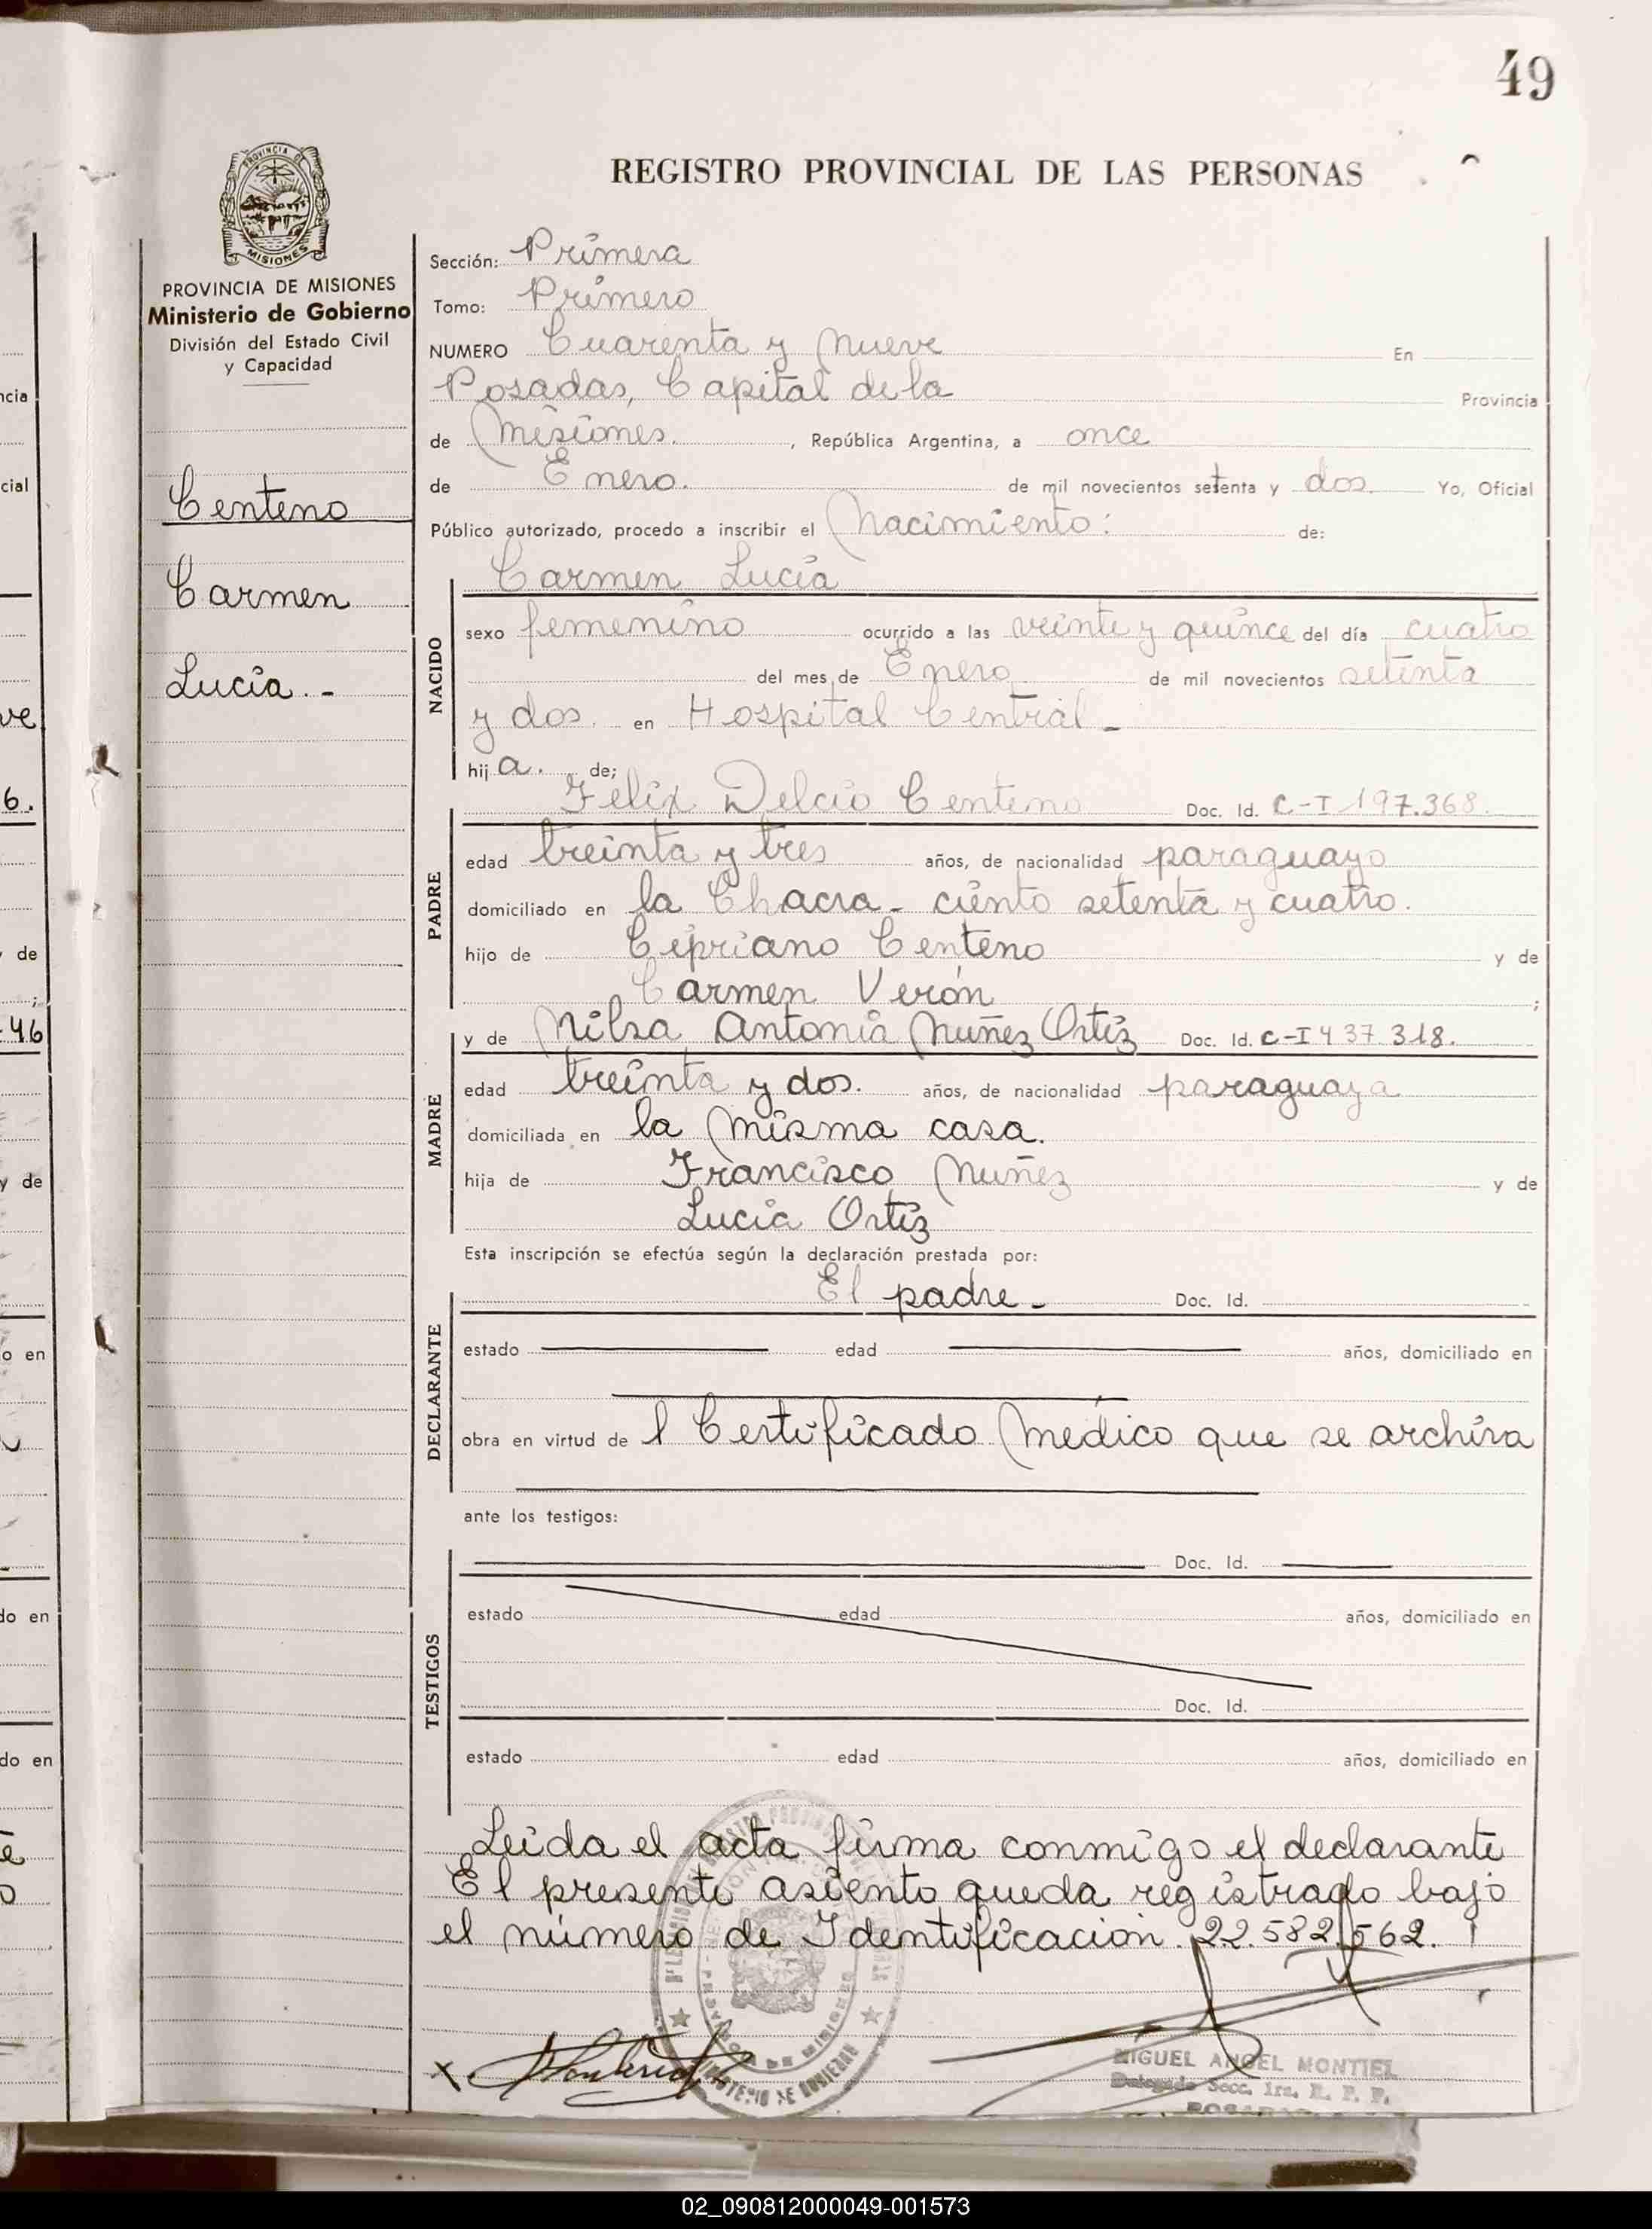 49
REGISTRO PROVINCIAL DE LAS PERSONAS
PROVINCIA DE
MISIONES
PROVINCIA DE MISIONES
Ministerio de Gobierno
División del Estado Civil
y Capacidad
Centeno
Carmen
Lucía.-
Sección: Primera
Tomo: Primero
NUMERO Cuarenta y nueve En
Posadas, Capital de la Provincia
de Misiones. , República Argentina, a once
de Enero. de mil novecientos setenta y dos. Yo, Oficial
Público autorizado, procedo a inscribir el Nacimiento: de:
Carmen Lucía
NACIDO
sexo femenino ocurrido a las veinte y quince del día cuatro
del mes de Enero de mil novecientos setenta
y dos. en Hospital Central -
hija. de;
PADRE
Felix Delcio Centeno Doc. Id. C-I 197.368.
edad treinta y tres años, de nacionalidad paraguayo
domiciliado en la Chacra - ciento setenta y cuatro.
hijo de Cipriano Centeno y de
Carmen Verón ;
MADRE
y de Nilsa Antonia Nuñez Ortiz Doc. Id. C-I 437.318.
edad treinta y dos. años, de nacionalidad paraguaya
domiciliada en la misma casa.
hija de Francisco Nuñez y de
Lucía Ortiz
Esta inscripción se efectúa según la declaración prestada por:
DECLARANTE
El padre - Doc. Id.
estado edad años, domiciliado en
obra en virtud de l Certificado Médico que se archiva
ante los testigos:
TESTIGOS
Doc. Id.
estado edad años, domiciliado en
Doc. Id.
estado edad años, domiciliado en
Leida el acta firma conmigo el declarante
El presente asiento queda registrado bajo
el número de Identificación. 22.582.562.
MIGUEL ANGEL MONTIEL
Delegado Secc. 1ra. R. P. P.
POSADAS
02_090812000049-001573